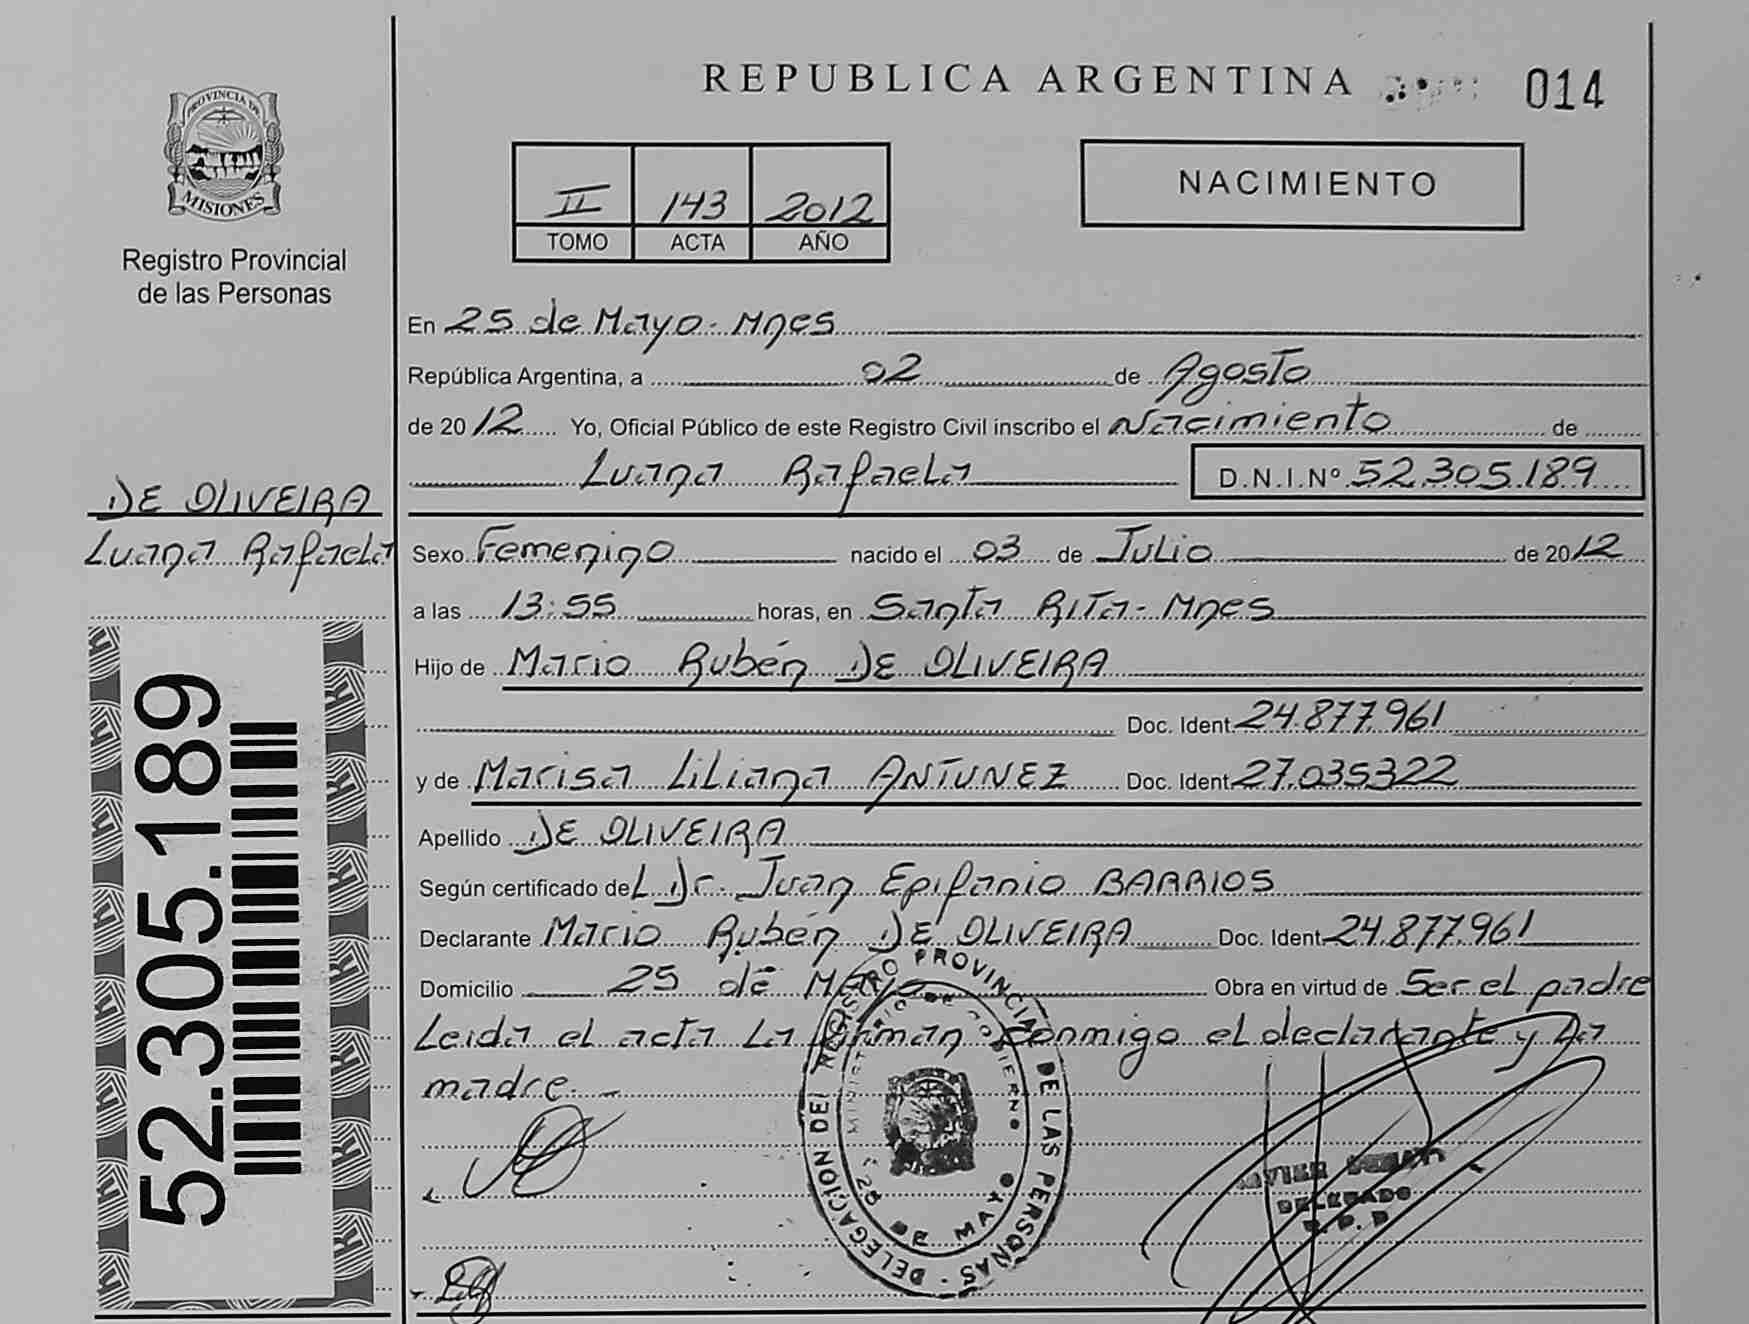 REPUBLICA ARGENTINA
014
PROVINCIA DE
MISIONES
Registro Provincial
de las Personas
II 143 2012
TOMO ACTA AÑO
NACIMIENTO
En 25 de Mayo - Mnes
República Argentina, a 02 de Agosto
de 2012 Yo, Oficial Público de este Registro Civil inscribo el Nacimiento de
Luana Rafaela D.N.I.Nº 52.305.189
DE OLIVEIRA
Luana Rafaela
Sexo Femenino nacido el 03 de Julio de 2012
a las 13:55 horas, en Santa Rita - Mnes
Hijo de Mario Rubén DE OLIVEIRA
Doc. Ident. 24.877.961
y de Marisa Liliana ANTUNEZ Doc. Ident. 27.035322
Apellido DE OLIVEIRA
Según certificado del Dr. Juan Epifanio BARRIOS
Declarante Mario Rubén DE OLIVEIRA Doc. Ident. 24.877.961
Domicilio 25 de Mayo Obra en virtud de Ser el padre
Leida el acta La firman conmigo el declarante y La
madre. -
52.305.189
DELEGACION DEL REGISTRO PROVINCIAL DE LAS PERSONAS -
MINISTERIO DE GOBIERNO
25 DE MAYO
DELEGADO